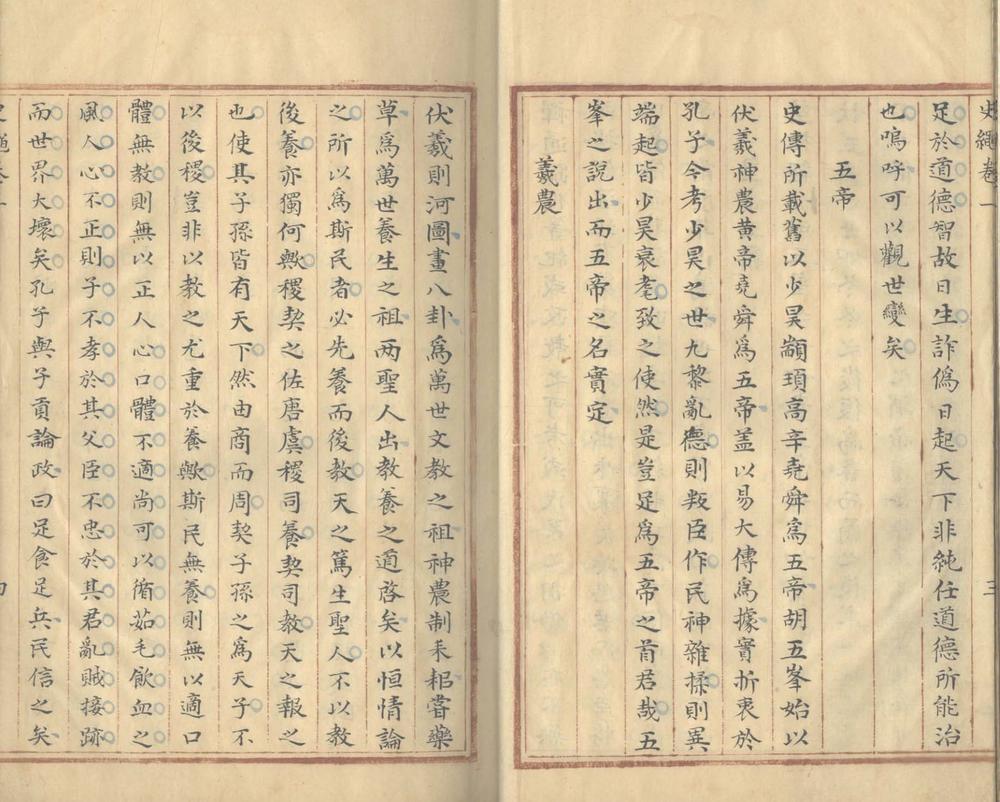 史繩卷一 三
足於道德智故日生詐僞日起天下非純任道德所能治
也嗚呼可以觀世變矣
五帝
史傳所載舊以少昊顓頊高辛堯舜爲五帝胡五峯始以
伏羲神農黄帝堯舜爲五帝盖以易大傳爲據實折衷於
孔子今考少昊之世九黎亂德則叛臣作民神雜揉則異
端起皆少昊衰耄致之使然是豈足爲五帝之首君哉五
峯之說出而五帝之名實定
羲農
伏羲則河圖畫八卦爲萬世文教之祖神農制耒耜嘗藥
草爲萬世養生之祖两聖人出教養之道啓矣以恒情論
之所以爲斯民者必先養而後教天之篤生聖人不以教
後養亦獨何歟稷契之佐唐虞稷司養契司教天之報之
也使其子孫皆有天下然由商而周契子孫之爲天子不
以後稷豈非以教之尤重於養歟斯民無養則無以適口
體無教則無以正人心口體不適尚可以循茹毛飲血之
風人心不正則子不孝於其父臣不忠於其君亂賊接跡
而世界大壞矣孔子與子貢論政曰足食足兵民信之矣